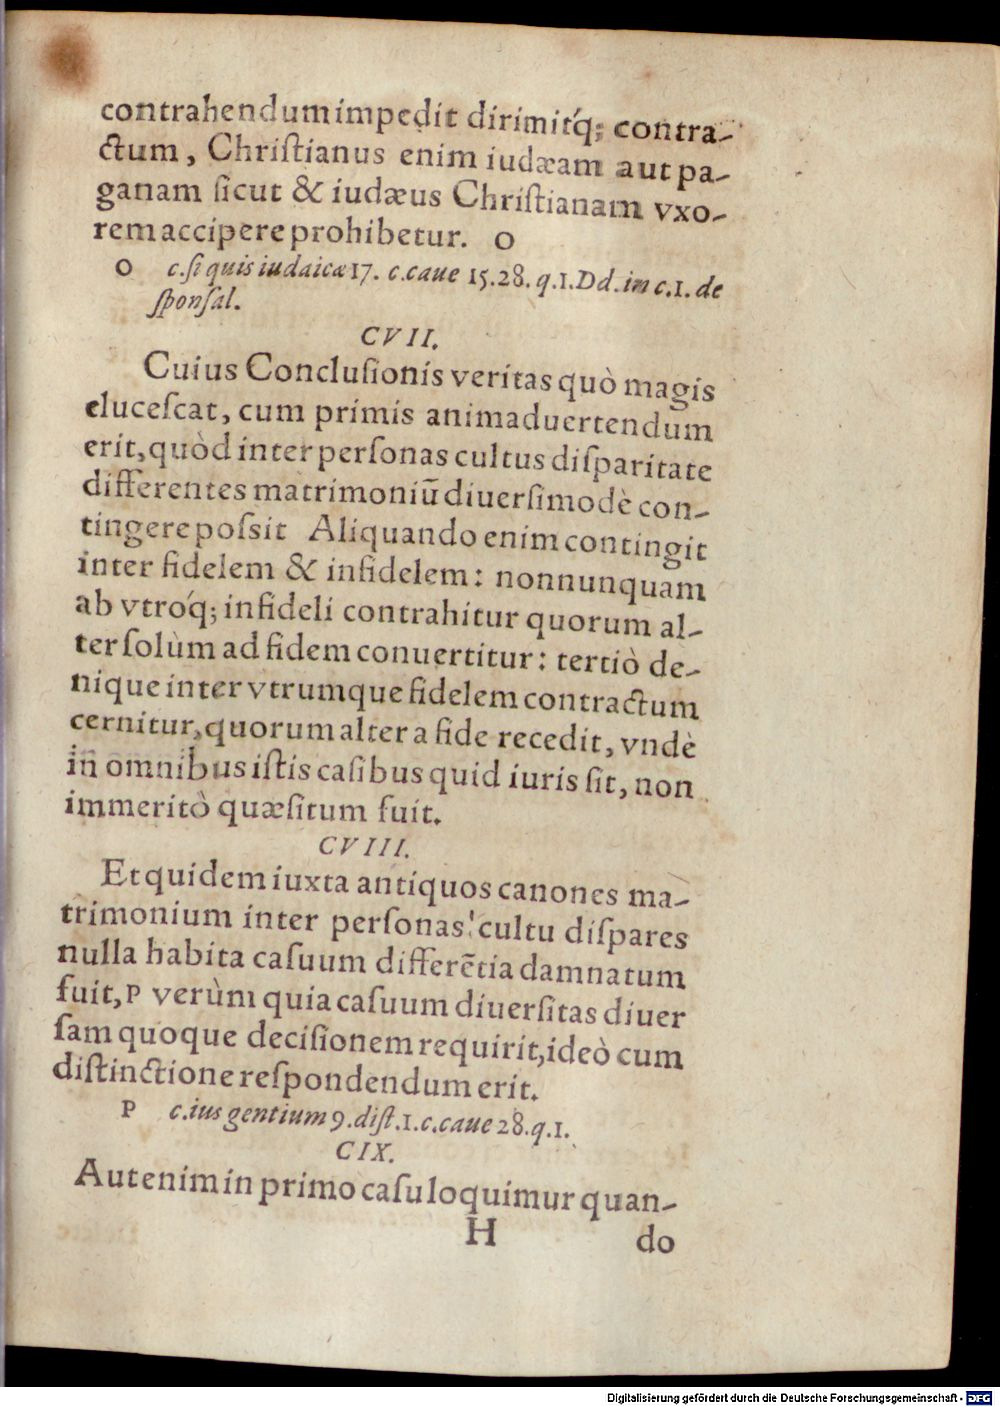 contrahendum impedit dirimitq́; contra-
ctum, Chriſtianus enim iudæam aut pa-
ganam ſicut & iudæus Chriſtianam vxo-
rem accipere prohibetur. O
O c.ſi quis iudaicæ 17. c.caue 15.28. q.1.Dd.in c.1. de
ſponſal.
CVII.
Cuius Concluſionis veritas quò magis
eluceſcat, cum primis animaduertendum
erit, quòd inter perſonas cultus diſparitate
differentes matrimoniũ diuerſimodè con-
tingere poſsit Aliquando enim contingit
inter fidelem & infidelem: nonnunquam
ab vtroq́; infideli contrahitur quorum al-
ter ſolùm ad fidem conuertitur: tertiò de-
nique inter vtrumque fidelem contractum
cernitur, quorum alter a fide recedit, vndè
in omnibus iſtis caſibus quid iuris ſit, non
immeritò quæſitum fuit.
CVIII.
Et quidem iuxta antiquos canones ma-
trimonium inter perſonas cultu diſpares
nulla habita caſuum differẽtia damnatum
fuit, P verùm quia caſuum diuerſitas diuer
ſam quoque deciſionem requirit, ideò cum
diſtinctione reſpondendum erit.
P c.ius gentium 9.diſt.1.c.caue 28.q.1.
CIX.
Aut enim in primo caſu loquimur quan-
H do
Digitalisierung gefördert durch die Deutsche Forschungsgemeinschaft - DFG